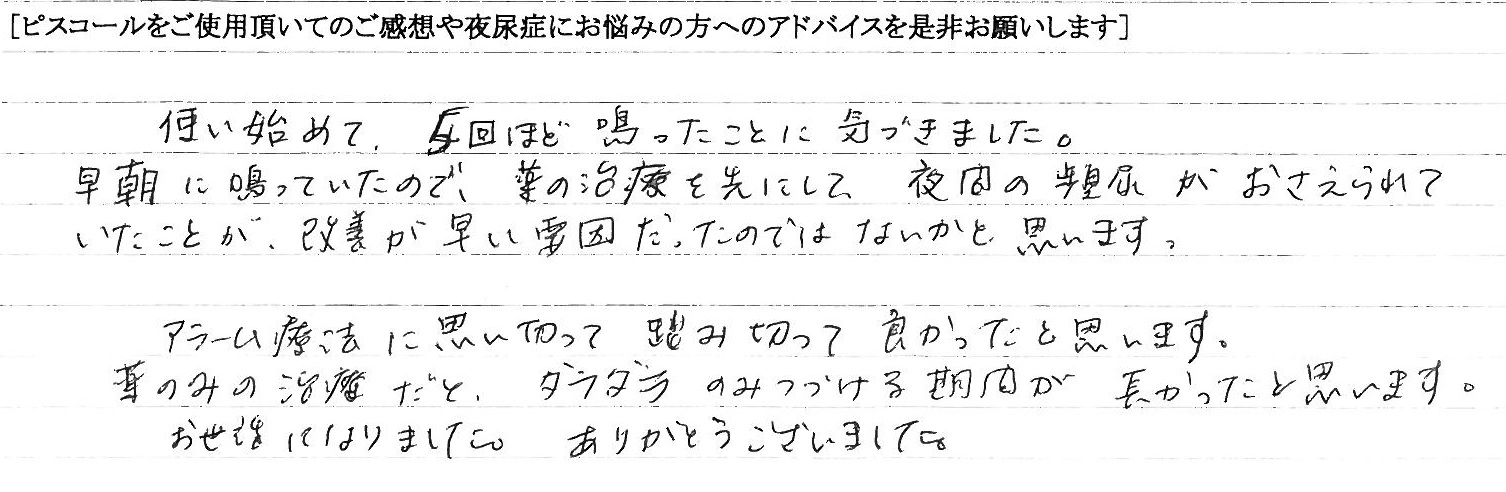 [ピスコールをご使用頂いてのご感想や夜尿症にお悩みの方へのアドバイスを是非お願いします]
使い始めて、5回ほど鳴ったことに気づきました。
早朝に鳴っていたので、薬の治療を先にして、夜間の頻尿がおさえられて
いたことが、改善が早い要因だったのではないかと思います。
アラーム療法に思い切って踏み切って良かったと思います。
薬のみの治療だと、ダラダラのみつづける期間が長かったと思います。
お世話になりました。ありがとうございました。